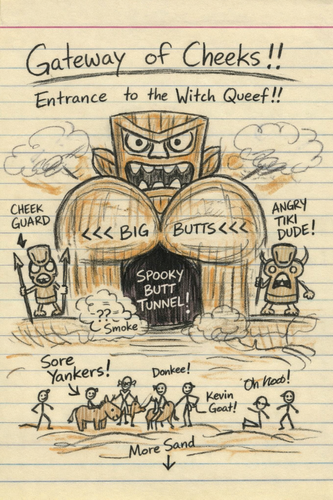 Gateway of Cheeks!!
Entrance to the Witch Queef!!
CHEEK
GUARD
ANGRY
TIKI
DUDE!
<<< BIG BUTTS <<<
SPOOKY
BUTT
TUNNEL!
??
Smoke
Sore
Yankers!
Donkee!
Kevin
Goat!
Oh nooo!
More Sand